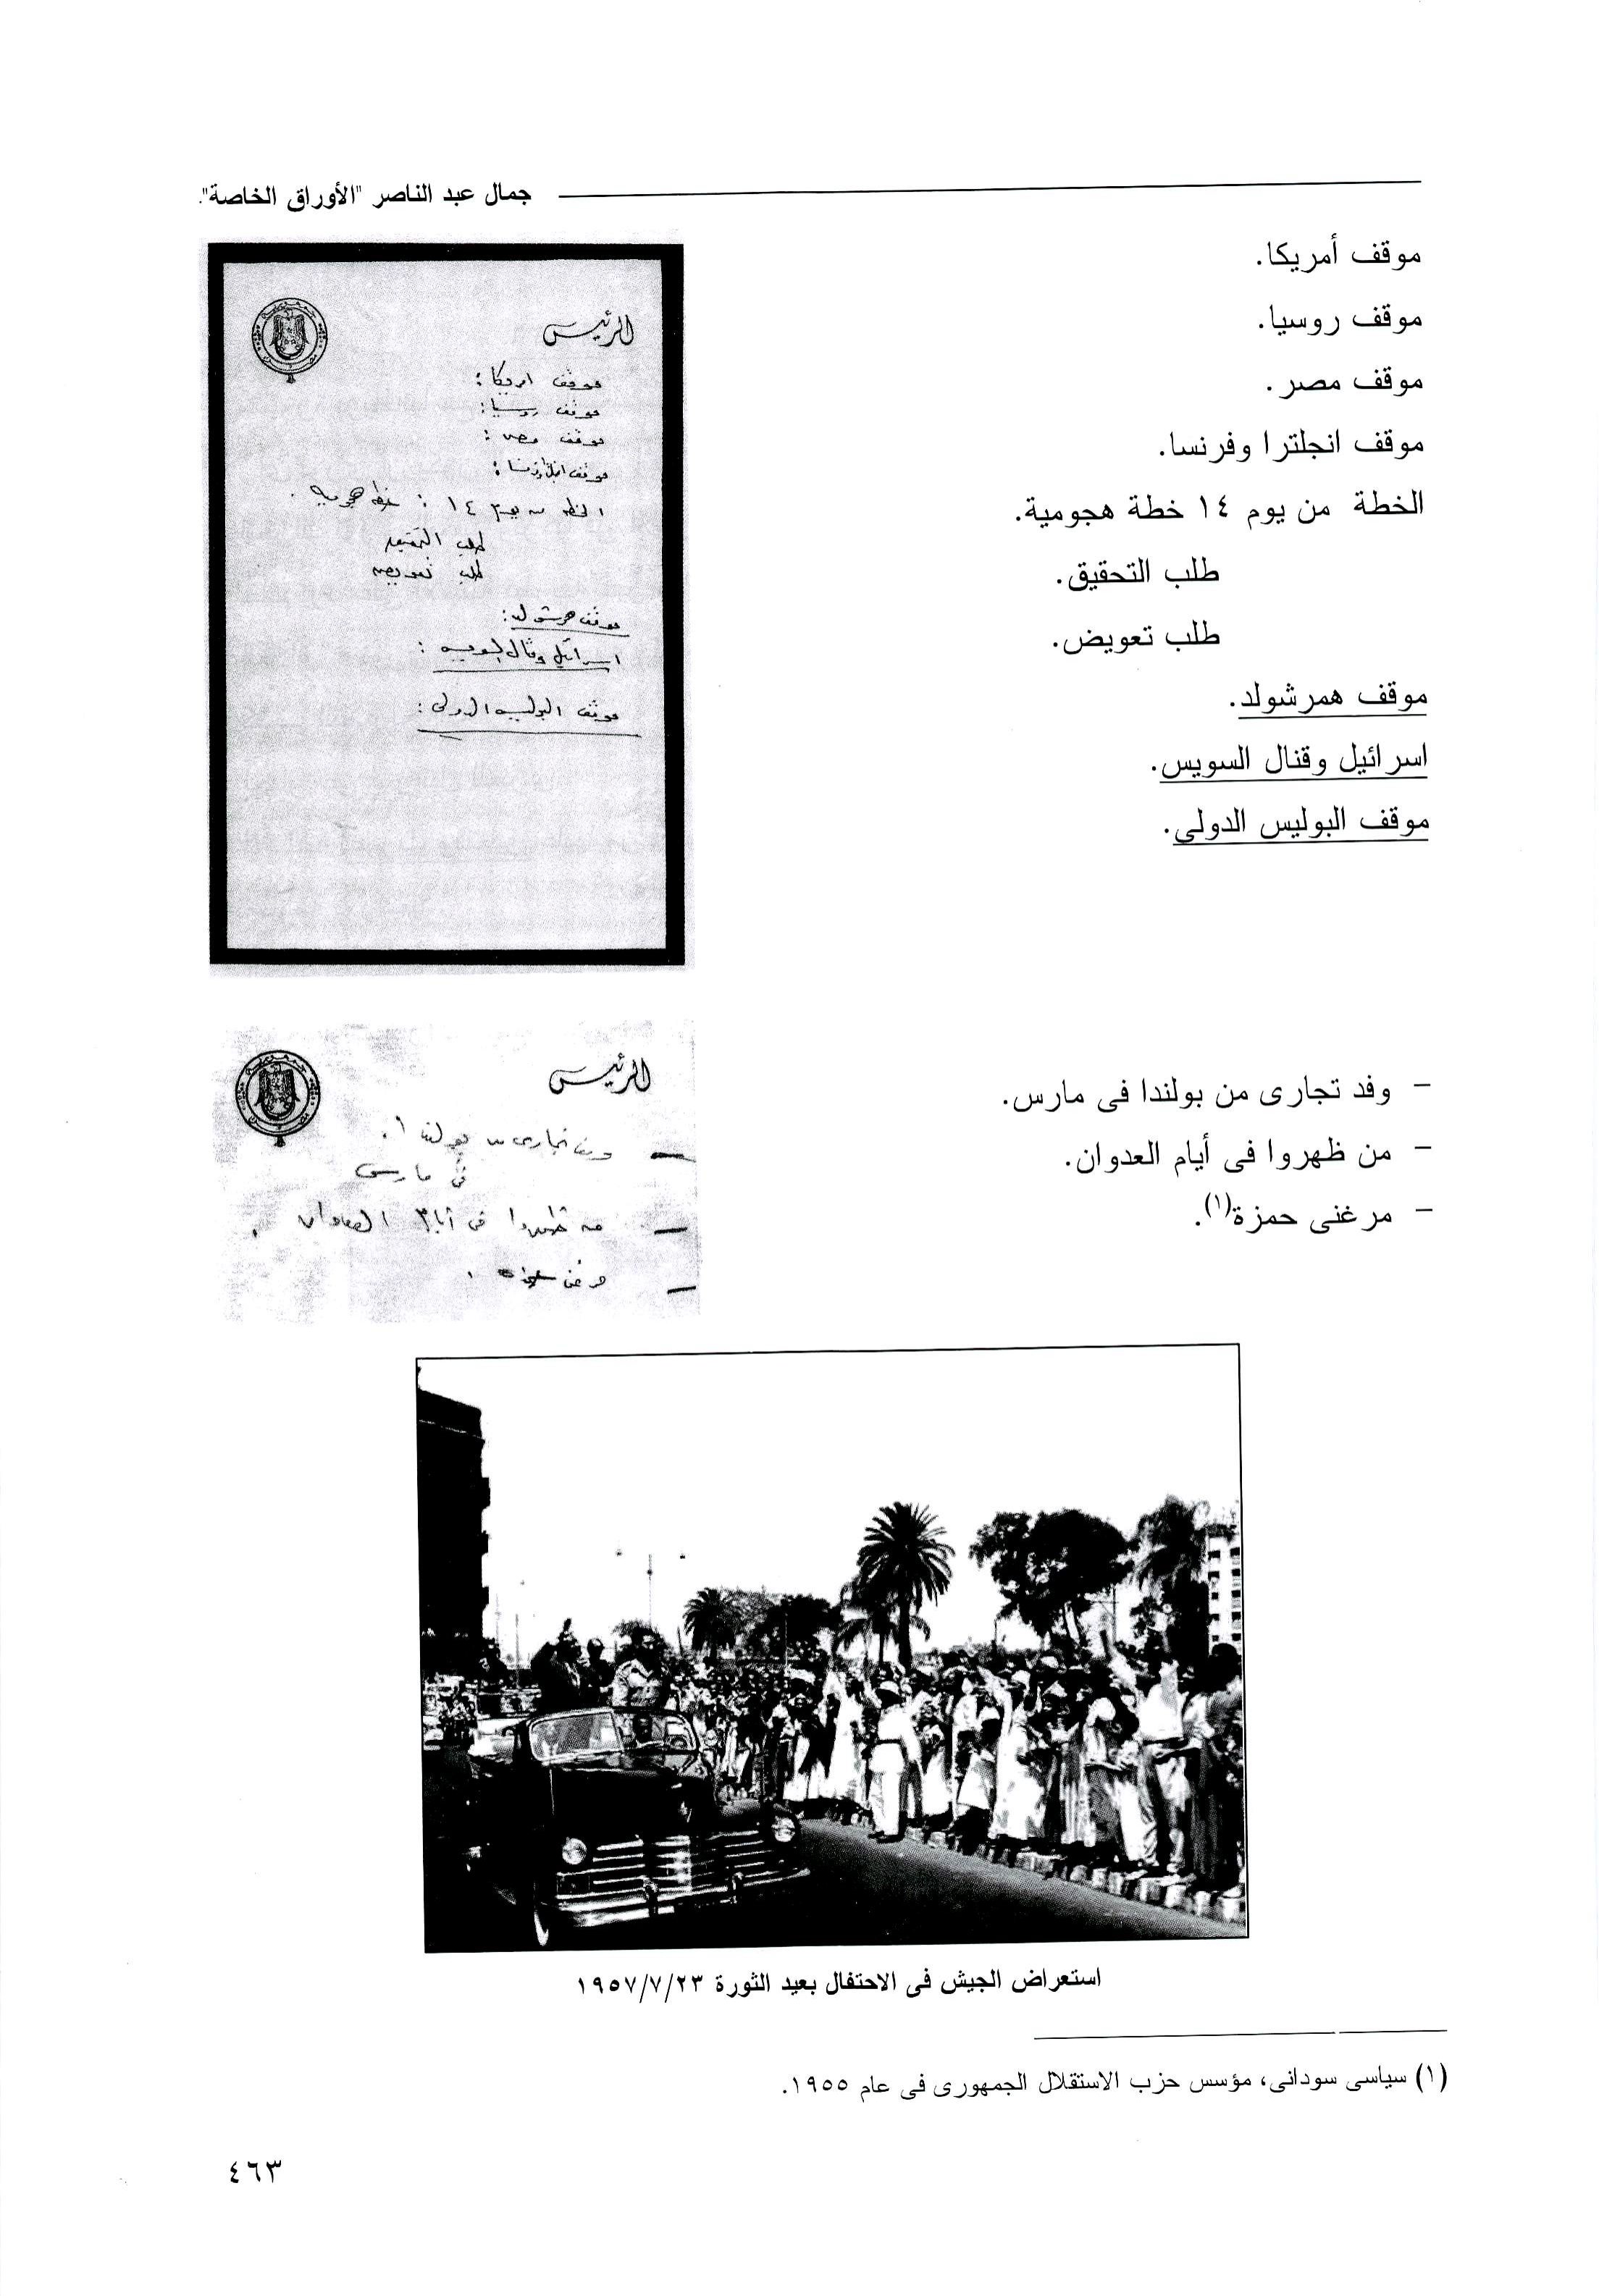 جمال عبد الناصر "الأوراق الخاصة".
موقف أمريكا.
موقف روسيا.
موقف مصر.
موقف انجلترا وفرنسا.
الخطة من يوم ١٤ خطة هجومية.
طلب التحقيق.
طلب تعويض.
موقف همرشولد.
اسرائيل وقنال السويس.
موقف البوليس الدولى.
الرئيس
موقف امريكا :
موقف روسيا :
موقف مصر :
موقف انجلترا وفرنسا :
الخطة من يوم ١٤ : خطة هجومية .
طلب التحقيق
طلب تعويض
موقف همرشولد :
اسرائيل وقنال السويس :
موقف البوليس الدولى :
– وفد تجارى من بولندا فى مارس.
– من ظهروا فى أيام العدوان.
– مرغنى حمزة(١).
الرئيس
– وفد تجارى من بولندا
فى مارس
– من ظهروا فى أيام العدوان .
– مرغنى حمزه .
استعراض الجيش فى الاحتفال بعيد الثورة ١٩٥٧/٧/٢٣
(١) سياسى سودانى، مؤسس حزب الاستقلال الجمهورى فى عام ١٩٥٥.
٤٦٣